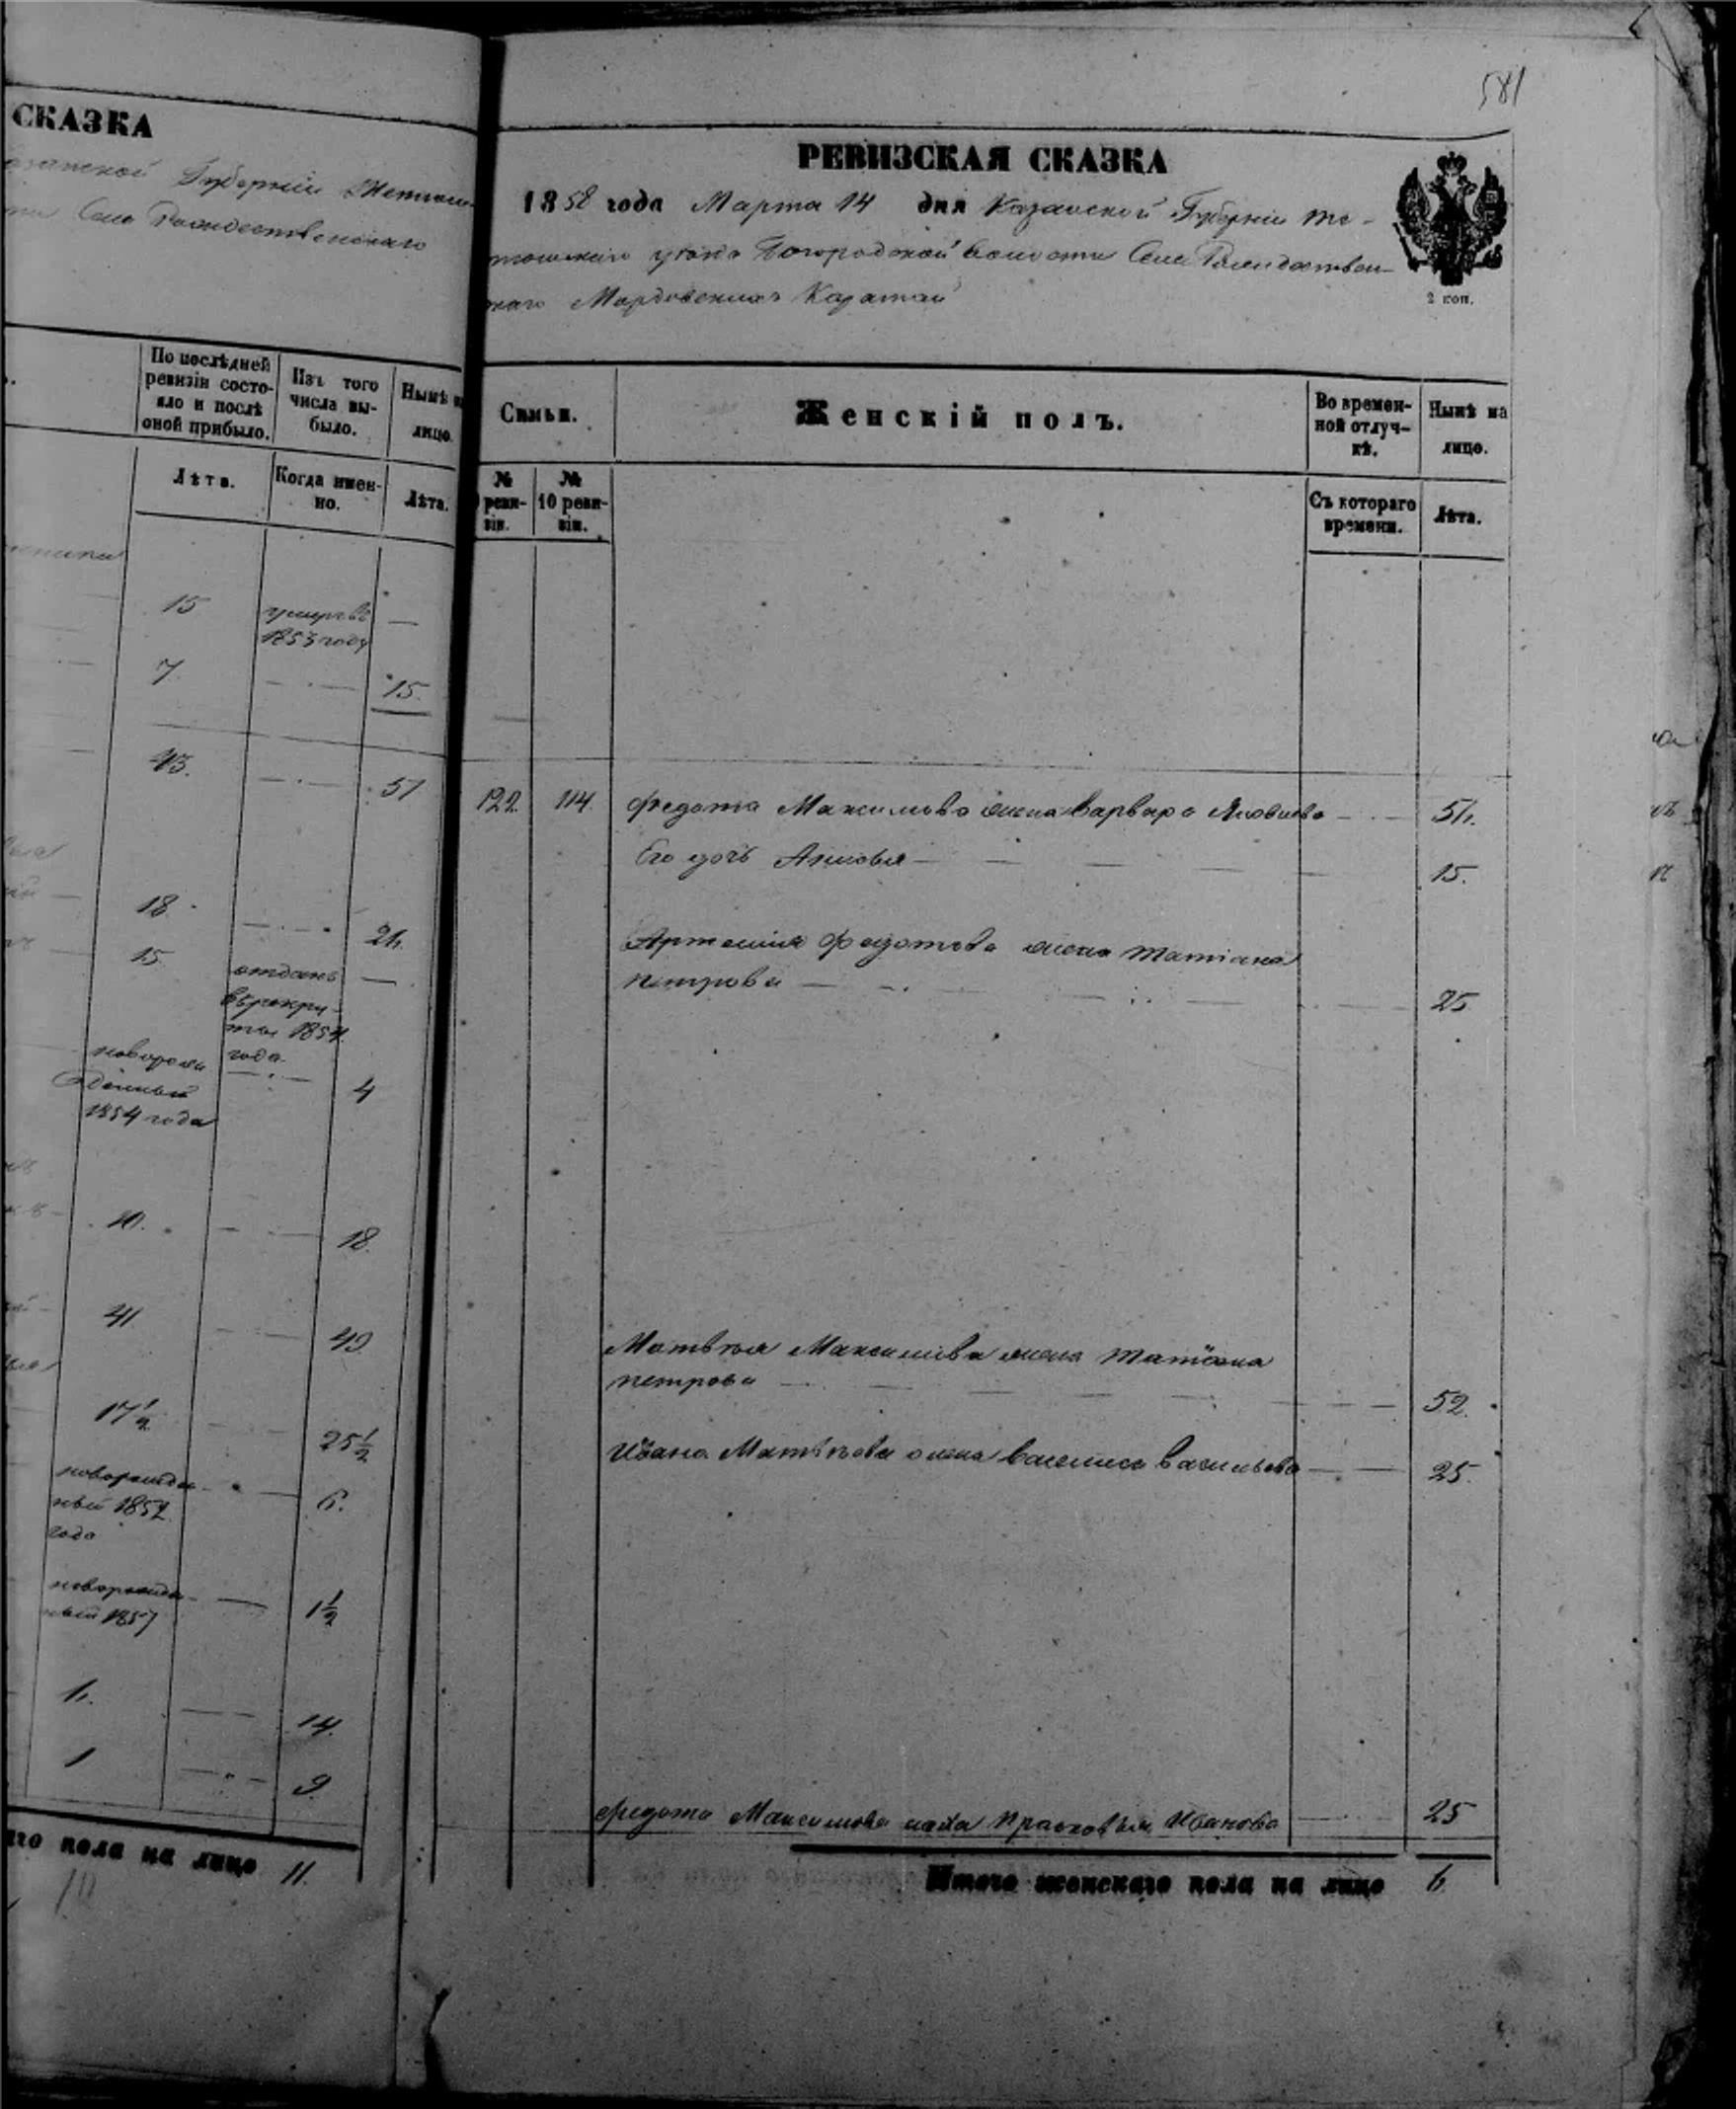 СКАЗКА
Губерніи
Село Рождественскаго
По послѣдней
ревизіи состо-
яло и послѣ
оной прибыло.
Изъ того
числа вы-
было.
Нынѣ
лицо.
Лѣта.
Когда имен-
но.
Лѣта.
15
умеръ въ
1853 году
—
7
15.
43.
51
18
21.
15
отданъ
въ рекру-
ты 1854
года
—
новорож
денный
1854 года
4
10.
18.
41
49
17 1/2
25 1/2
новорожден-
ный 1852
года
6.
новорожден-
ный 1857
1 1/2
1.
14.
1
9.
го пола на лицо 11.
10
581
РЕВИЗСКАЯ СКАЗКА
1858 года Марта 14 дня Казанской Губерніи Те-
тюшскаго уѣзда Богородской волости Села Рождествен-
скаго Мордовскихъ Каратай
2 коп.
Семьи.
Женскій полъ.
Во времен-
ной отлуч-
кѣ.
Нынѣ на
лицо.
№
реви-
зіи.
№
10 реви-
зіи.
Съ котораго
времени.
Лѣта.
122. 114. Федота Максимова жена Варвара Яковлева 51.
Его дочь 15.
Артемія Федотова жена Татіана
Петрова 25
Матвѣя Максимова жена Татіана
Петрова 52.
Ивана Матвѣева жена Василиса Васильева 25.
Федота Максимова Прасковья Иванова 25
Итого женскаго пола на лицо 6